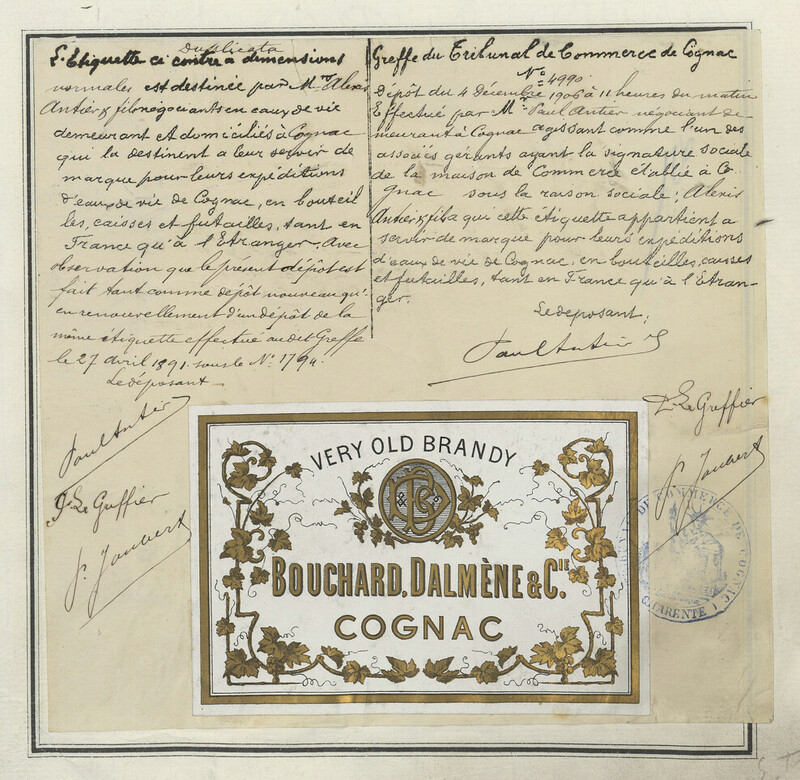 Duplicata
L'Etiquette ci contre a dimensions
normales est destinée par Mr. Alexis
Antier & fils négociants en eaux de vie
demeurant et domiciliés à Cognac
qui la destinent a leur servir de
marque pour leurs expéditions
d'eaux de vie de Cognac, en bouteil
les, caisses et futailles, tant en
France qu'à l'Etranger. Avec
observation que le présent dépôt est
fait tant comme dépôt nouveau qu'
en renouvellement d'un dépôt de la
même étiquette effectué au dit Greffe
le 27 avril 1891 sous le No. 1794.
Le déposant
Paul Antier
Le Greffier
P. Joubert
Greffe du Tribunal de Commerce de Cognac
No. 4990
Dépôt du 4 Décembre 1906 à 11 heures du matin
Effectué par Mr. Paul Antier négociant de-
meurant à Cognac agissant comme l'un des
associés gérants ayant la signature sociale
de la maison de Commerce établie à Co
gnac sous la raison sociale; Alexis
Antier & fils qui cette étiquette appartient a
servir de marque pour leurs expéditions
d'eaux de vie de Cognac, en bouteilles, caisses
et futailles, tant en France qu'à l'Etran-
ger.
Le déposant,
Paul Antier
Le Greffier
P. Joubert
VERY OLD BRANDY
BOUCHARD, DALMÈNE & CIE
COGNAC
DE COMMERCE DE COGNAC
CHARENTE